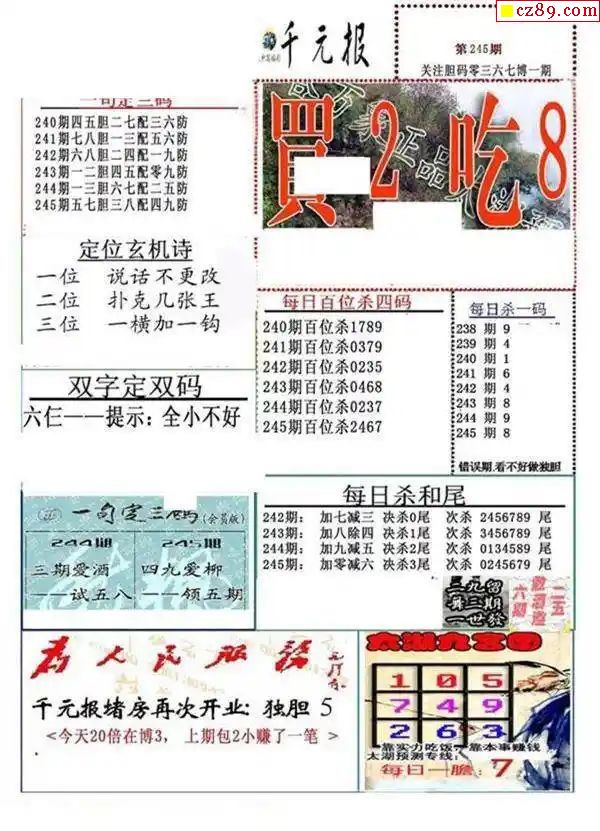 cz89.com
千元报
第245期
关注胆码零三六七博一期
一句定三码
240期四五胆二七配三六防
241期七八胆一三配五六防
242期六八胆二四配一九防
243期一二胆四五配零九防
244期一三胆六七配二五防
245期五七胆三八配四九防
買2吃8
定位玄机诗
一位 说话不更改
二位 扑克几张王
三位 一横加一钩
每日百位杀四码
240期百位杀1789
241期百位杀0379
242期百位杀0235
243期百位杀0468
244期百位杀0237
245期百位杀2467
每日杀一码
238 期 9
239 期 4
240 期 1
241 期 6
242 期 4
243 期 8
244 期 9
245 期 8
错误期,看不好做独胆
双字定双码
六仨——提示：全小不好
每日杀和尾
242期： 加七减三 决杀0尾 次杀 2456789 尾
243期： 加八除四 决杀1尾 次杀 3456789 尾
244期： 加九减五 决杀2尾 次杀 0134589 尾
245期： 加零减六 决杀3尾 次杀 0245679 尾
一句定三码(会员版)
244期 245期
三期爱酒 四九爱柳
——试五八 ——领五期
为人民服务
千元报堵房再次开业: 独胆 5
<今天20倍在博3, 上期包2小赚了一笔>
太湖九宫图
1 0 5
7 4 9
2 6 3
靠实力吃饭? 靠本事赚钱
太湖预测专线:
每日一胆: 7